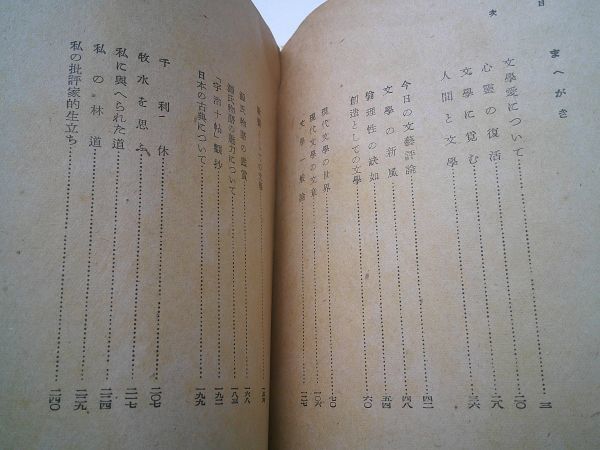 目次
まへがき
文學愛について……三
心靈の復活……二〇
文學に覚む……二八
人間と文學……三六
今日の文藝評論……四二
文學の新風……四八
倫理性の缺如……五四
創造としての文學……六〇
現代文學の世界……七〇
現代文學の文章……一〇六
文學一般論
源氏物語の鑑賞……一六八
源氏物語の魅力について……一八三
「宇治十帖」觀抄……一九二
日本の古典について……一九九
千利休……二〇七
牧水を思ふ……二一七
私に與へられた道……二二四
私の林道……二二九
私の批評家的生立ち……二四〇